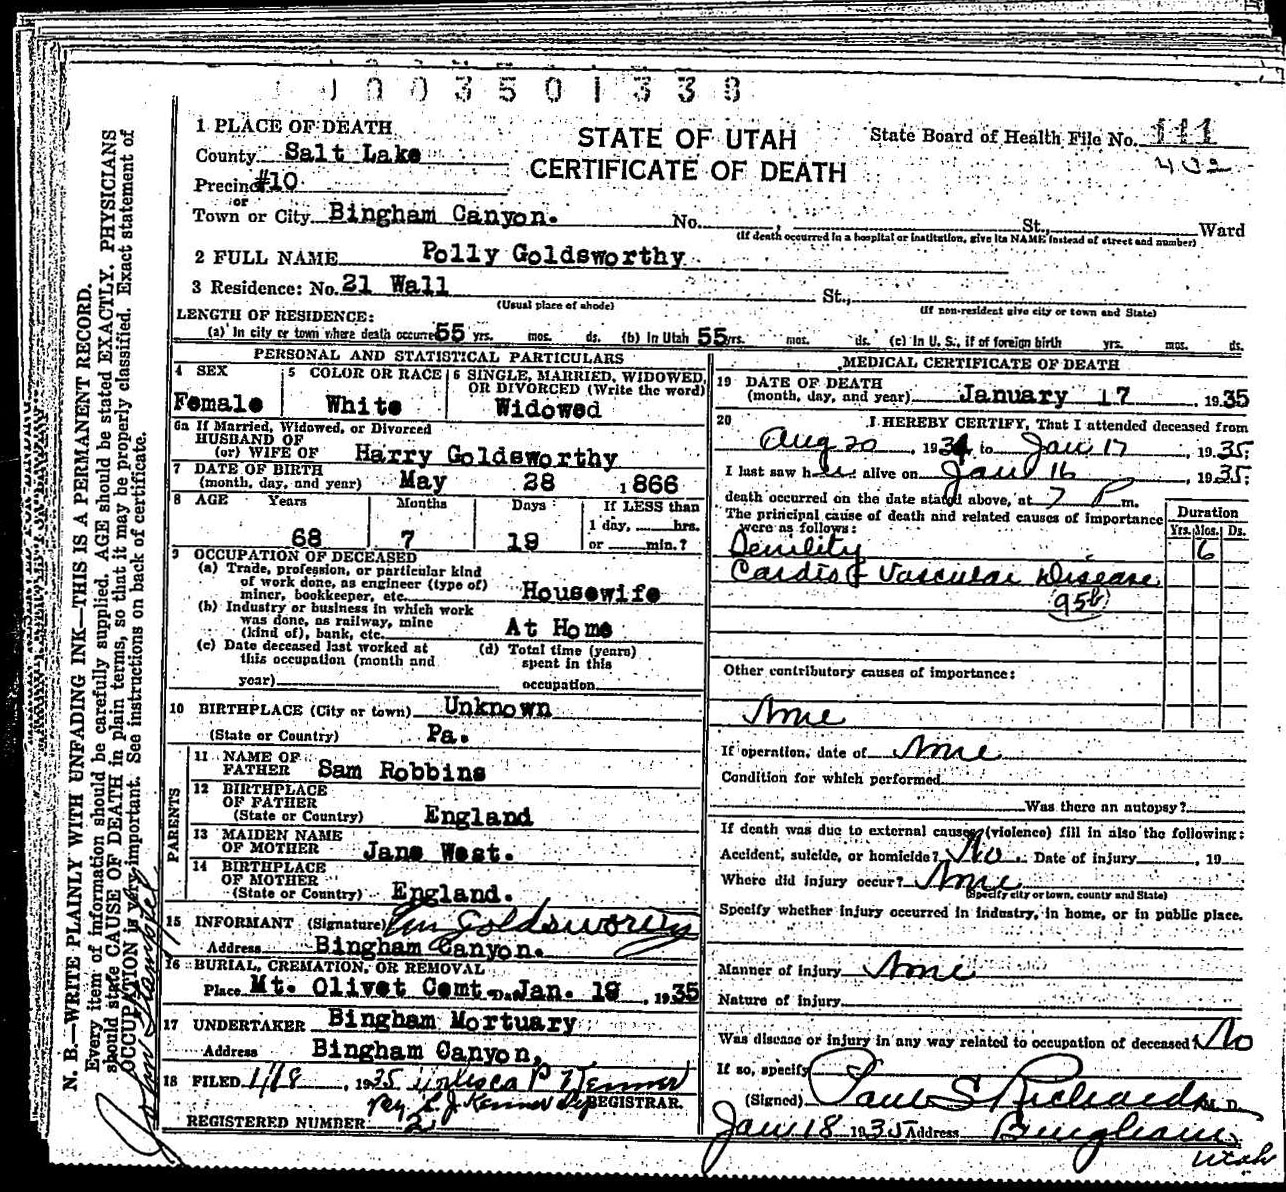 1 0 0 3 5 0 1 3 3 8
1 PLACE OF DEATH
County Salt Lake
Precinct #10
or
Town or City Bingham Canyon. No. St., Ward
(If death occurred in a hospital or institution, give its NAME instead of street and number)
STATE OF UTAH
CERTIFICATE OF DEATH
State Board of Health File No. 111
432
2 FULL NAME Polly Goldsworthy
3 Residence: No. 21 Wall St.,
(Usual place of abode) (If non-resident give city or town and State)
LENGTH OF RESIDENCE:
(a) In city or town where death occurred 55 yrs. mos. ds. (b) In Utah 55 yrs. mos. ds. (c) In U. S., if of foreign birth yrs. mos. ds.
PERSONAL AND STATISTICAL PARTICULARS
4 SEX
Female
5 COLOR OR RACE
White
6 SINGLE, MARRIED, WIDOWED,
OR DIVORCED (Write the word)
Widowed
6a If Married, Widowed, or Divorced
HUSBAND OF
(or) WIFE OF Harry Goldsworthy
7 DATE OF BIRTH
(month, day, and year) May 28 1866
8 AGE Years Months Days If LESS than
1 day, hrs.
68 7 19 or min.?
9 OCCUPATION OF DECEASED
(a) Trade, profession, or particular kind
of work done, as engineer (type of)
miner, bookkeeper, etc. Housewife
(b) Industry or business in which work
was done, as railway, mine
(kind of), bank, etc. At Home
(c) Date deceased last worked at
this occupation (month and
year)
(d) Total time (years)
spent in this
occupation
10 BIRTHPLACE (City or town) Unknown
(State or Country) Pa.
PARENTS
11 NAME OF
FATHER Sam Robbins
12 BIRTHPLACE
OF FATHER
(State or Country) England
13 MAIDEN NAME
OF MOTHER Jane West.
14 BIRTHPLACE
OF MOTHER
(State or Country) England.
15 INFORMANT (Signature) Wm Goldsworthy
Address Bingham Canyon.
16 BURIAL, CREMATION, OR REMOVAL
Place Mt. Olivet Cemt. Date Jan. 19, 1935
17 UNDERTAKER Bingham Mortuary
Address Bingham Canyon,
18 FILED 1/18, 1935
REGISTRAR.
REGISTERED NUMBER 2
MEDICAL CERTIFICATE OF DEATH
19 DATE OF DEATH
(month, day, and year) January 17, 1935
20 I HEREBY CERTIFY, That I attended deceased from
Aug 20, 1934, to Jan 17, 1935;
I last saw her alive on Jan 16, 1935;
death occurred on the date stated above, at 7 P m.
The principal cause of death and related causes of importance
were as follows:
Duration
Yrs. Mos. Ds.
Senility 6
Cardio & Vascular Disease
95b
Other contributory causes of importance:
None
If operation, date of None
Condition for which performed
Was there an autopsy?
If death was due to external causes (violence) fill in also the following:
Accident, suicide, or homicide? No. Date of injury, 19
Where did injury occur? None
(Specify city or town, county and State)
Specify whether injury occurred in industry, in home, or in public place.
Manner of injury None
Nature of injury
Was disease or injury in any way related to occupation of deceased? No
If so, specify
(Signed) Paul S Richards M. D.
Jan 18 1935 Address Bingham
Utah
N. B.—WRITE PLAINLY WITH UNFADING INK—THIS IS A PERMANENT RECORD.
Every item of information should be carefully supplied. AGE should be stated EXACTLY. PHYSICIANS
should state CAUSE OF DEATH in plain terms, so that it may be properly classified. Exact statement of
OCCUPATION is very important. See instructions on back of certificate.